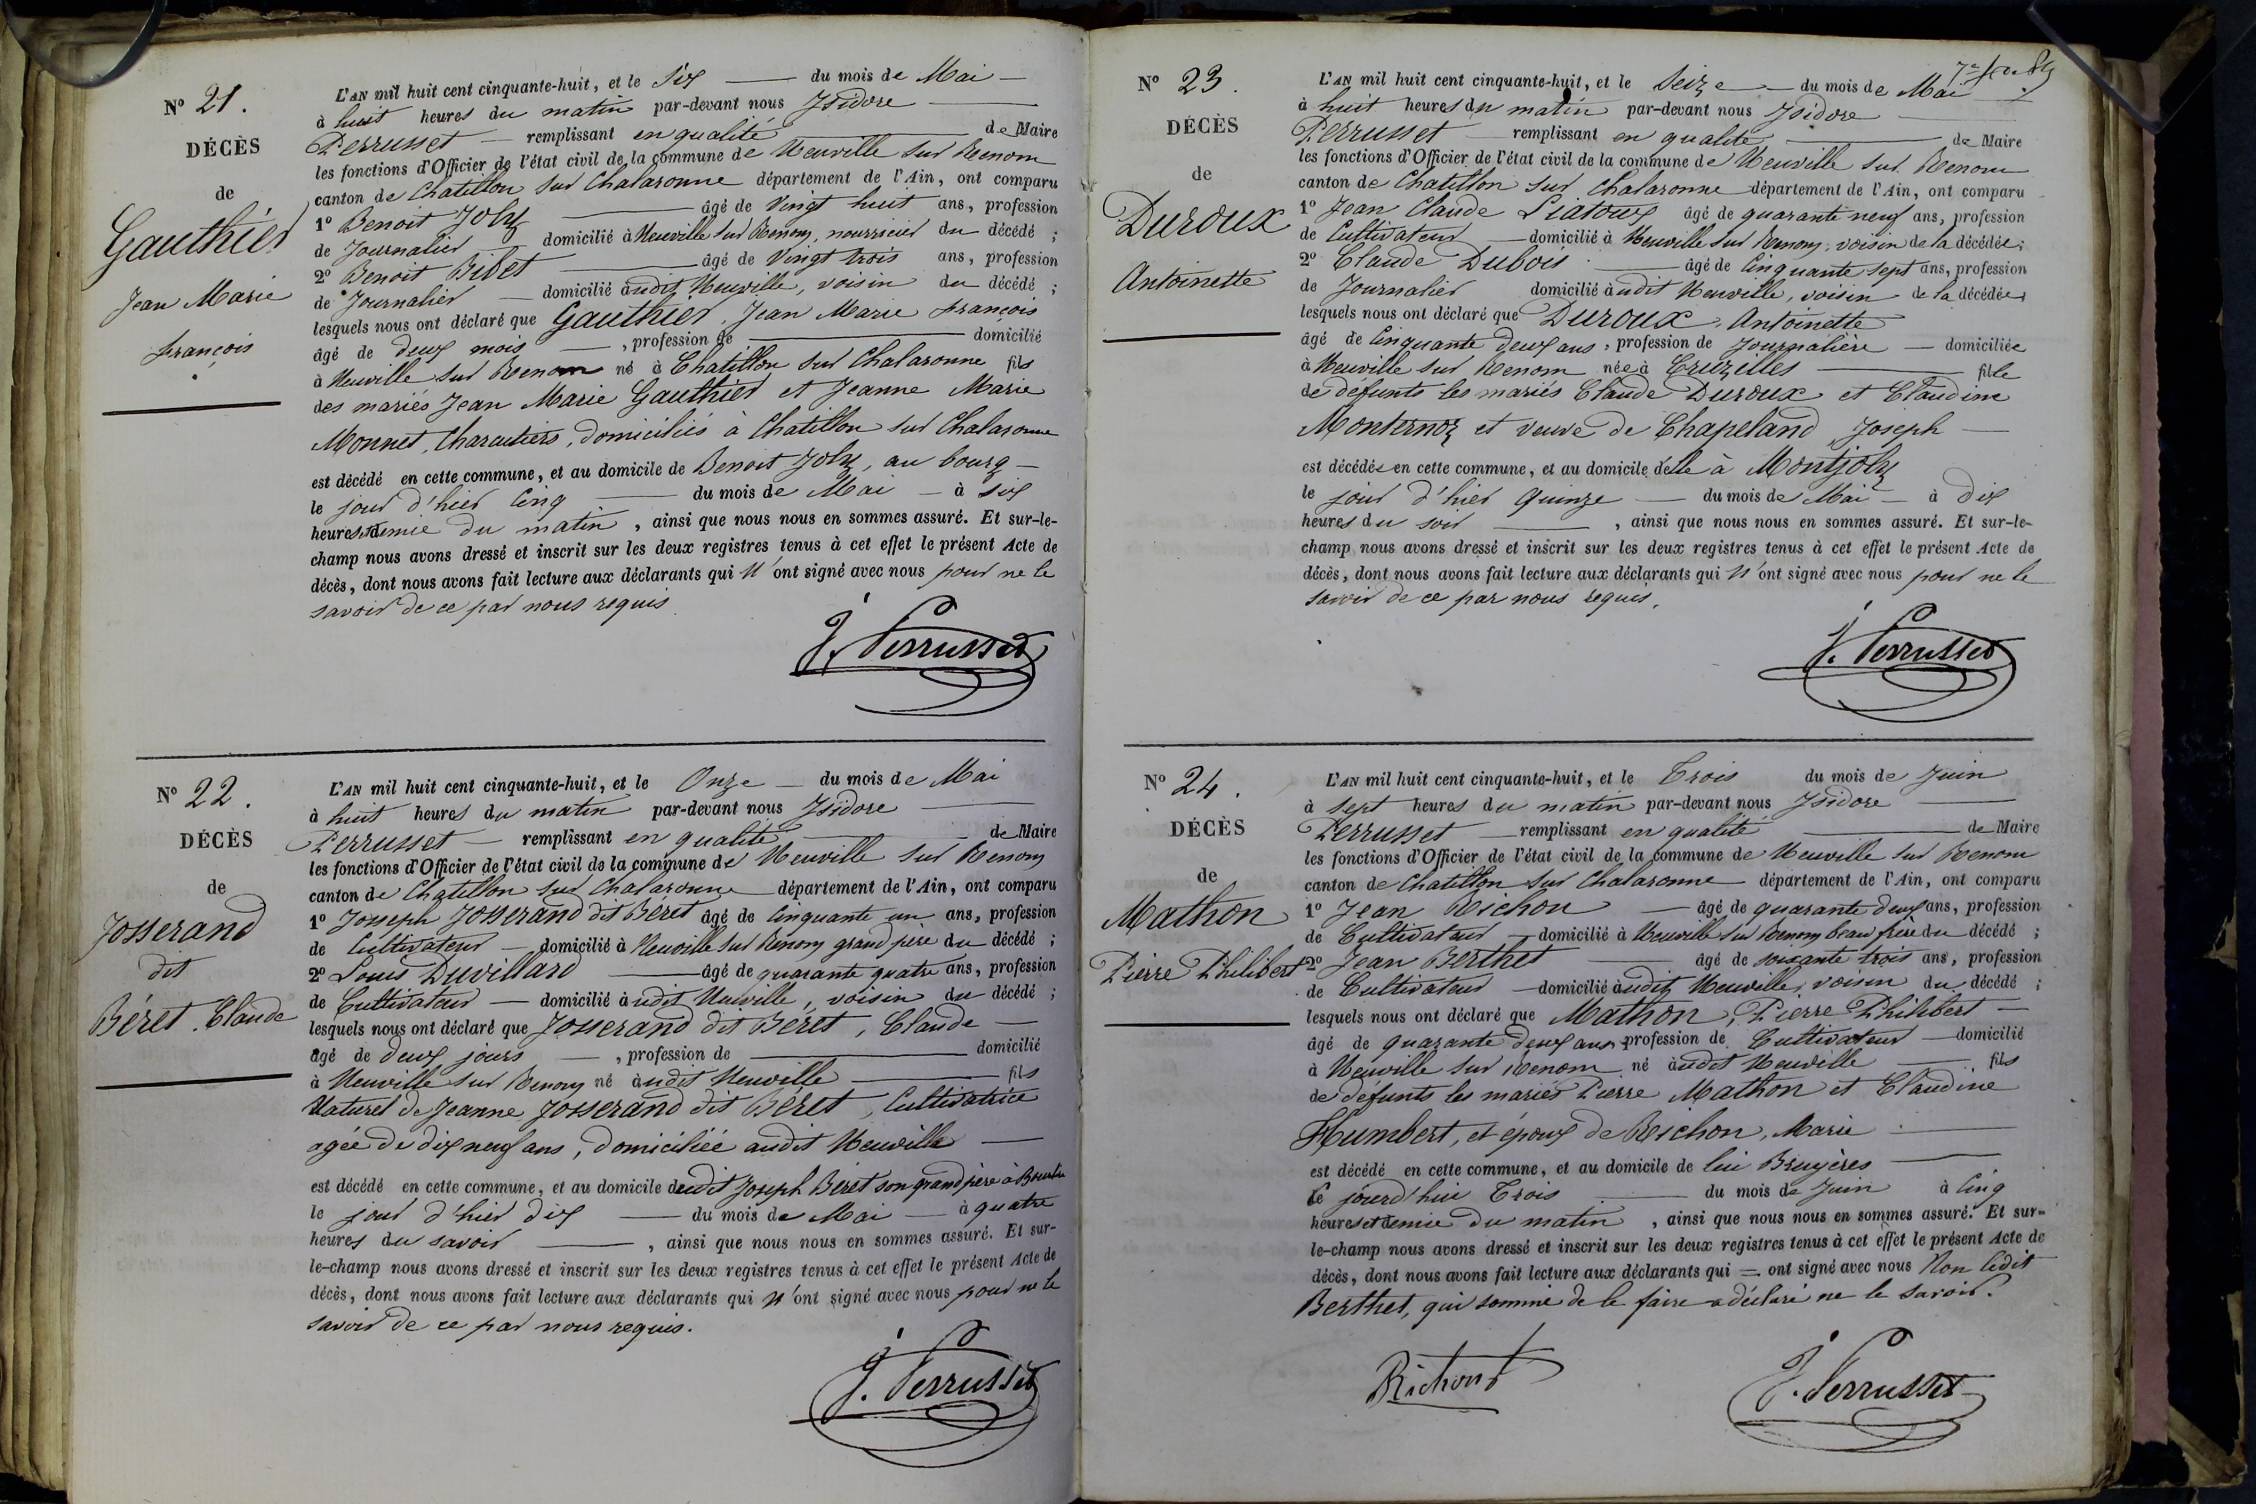 N° 21.
DÉCÈS
de
Gauthier
Jean Marie
françois
L'AN mil huit cent cinquante-huit, et le six du mois de Mai
à huit heures du matin par-devant nous Isidore
Perrusset remplissant en qualité de Maire
les fonctions d'Officier de l'état civil de la commune de Neuville sur Renom
canton de Chatillon sur Chalaronne département de l'Ain, ont comparu
1° Benoit Joly âgé de vingt huit ans, profession
de Journalier domicilié à Neuville sur Renom, nourricier du décédé ;
2° Benoit Bibet âgé de vingt trois ans, profession
de Journalier domicilié audit Neuville, voisin du décédé ;
lesquels nous ont déclaré que Gauthier, Jean Marie françois
âgé de deux mois , profession de domicilié
à Neuville sur Renom né à Chatillon sur Chalaronne fils
des mariés Jean Marie Gauthier et Jeanne Marie
Monnet, Charcutiers, domiciliés à Chatillon sur Chalaronne
est décédé en cette commune, et au domicile de Benoit Joly, au bourg
le jour d'hier cinq du mois de Mai à six
heures et demie du matin , ainsi que nous nous en sommes assuré. Et sur-le-
champ nous avons dressé et inscrit sur les deux registres tenus à cet effet le présent Acte de
décès, dont nous avons fait lecture aux déclarants qui n'ont signé avec nous pour ne le
savoir de ce par nous requis.
J. Perrusset
N° 22.
DÉCÈS
de
Josserand
dit
Béret. Claude
L'AN mil huit cent cinquante-huit, et le Onze du mois de Mai
à huit heures du matin par-devant nous Isidore
Perrusset remplissant en qualité de Maire
les fonctions d'Officier de l'état civil de la commune de Neuville sur Renom
canton de Chatillon sur Chalaronne département de l'Ain, ont comparu
1° Josseph Josserand dit Béret âgé de cinquante un ans, profession
de Cultivateur domicilié à Neuville sur Renom grand père du décédé ;
2° Louis Duvillard âgé de quarante quatre ans, profession
de Cultivateur domicilié audit Neuville, voisin du décédé ;
lesquels nous ont déclaré que Josserand dit Béret, Claude
âgé de deux jours , profession de domicilié
à Neuville sur Renom né audit Neuville fils
Naturel de Jeanne Josserand dit Béret, Cultivatrice
agée de dix neuf ans, domiciliée audit Neuville
est décédé en cette commune, et au domicile dudit Joseph Béret son grand père à
le jour d'hier dix du mois de Mai à quatre
heures du savoir , ainsi que nous nous en sommes assuré. Et sur-
le-champ nous avons dressé et inscrit sur les deux registres tenus à cet effet le présent Acte de
décès, dont nous avons fait lecture aux déclarants qui n'ont signé avec nous pour ne le
savoir de ce par nous requis.
J. Perrusset
N° 23.
DÉCÈS
de
Duroux
Antoinette
L'AN mil huit cent cinquante-huit, et le seize du mois de Mai
à huit heures du matin par-devant nous Isidore
Perrusset remplissant en qualité de Maire
les fonctions d'Officier de l'état civil de la commune de Neuville sur Renom
canton de Chatillon sur Chalaronne département de l'Ain, ont comparu
1° Jean Claude Liatoux âgé de quarante neuf ans, profession
de Cultivateur domicilié à Neuville sur Renom, voisin de la décédée ;
2° Claude Dubois âgé de cinquante sept ans, profession
de Journalier domicilié audit Neuville, voisin de la décédée ;
lesquels nous ont déclaré que Duroux, Antoinette
âgé de cinquante deux ans, profession de Journalière domiciliée
à Neuville sur Renom née à Cruzilles fille
de défunts les mariés Claude Duroux et Claudine
Monternoz et veuve de Chapeland Joseph
est décédée en cette commune, et au domicile d'elle à Montjoly
le jour d'hier quinze du mois de Mai à dix
heures du soir , ainsi que nous nous en sommes assuré. Et sur-le-
champ nous avons dressé et inscrit sur les deux registres tenus à cet effet le présent Acte de
décès, dont nous avons fait lecture aux déclarants qui n'ont signé avec nous pour ne le
savoir de ce par nous requis.
J. Perrusset
N° 24.
DÉCÈS
de
Mathon
Pierre Philibert
L'AN mil huit cent cinquante-huit, et le Trois du mois de Juin
à sept heures du matin par-devant nous Isidore
Perrusset remplissant en qualité de Maire
les fonctions d'Officier de l'état civil de la commune de Neuville sur Renom
canton de Chatillon sur Chalaronne département de l'Ain, ont comparu
1° Jean Richon âgé de quarante deux ans, profession
de Cultivateur domicilié à Neuville sur Renom beau frère du décédé ;
2° Jean Berthet âgé de soixante trois ans, profession
de Cultivateur domicilié audit Neuville, voisin du décédé ;
lesquels nous ont déclaré que Mathon, Pierre Philibert
âgé de quarante deux ans profession de Cultivateur domicilié
à Neuville sur Renom né audit Neuville fils
de défunts les mariés Pierre Mathon et Claudine
Humbert, et époux de Richon, Marie
est décédé en cette commune, et au domicile de lui Bruyères
le jourd'hui Trois du mois de Juin à cinq
heures et demie du matin , ainsi que nous nous en sommes assuré. Et sur-
le-champ nous avons dressé et inscrit sur les deux registres tenus à cet effet le présent Acte de
décès, dont nous avons fait lecture aux déclarants qui = ont signé avec nous Non ledit
Berthet, qui sommé de le faire a déclaré ne le savoir.
Richont
J. Perrusset